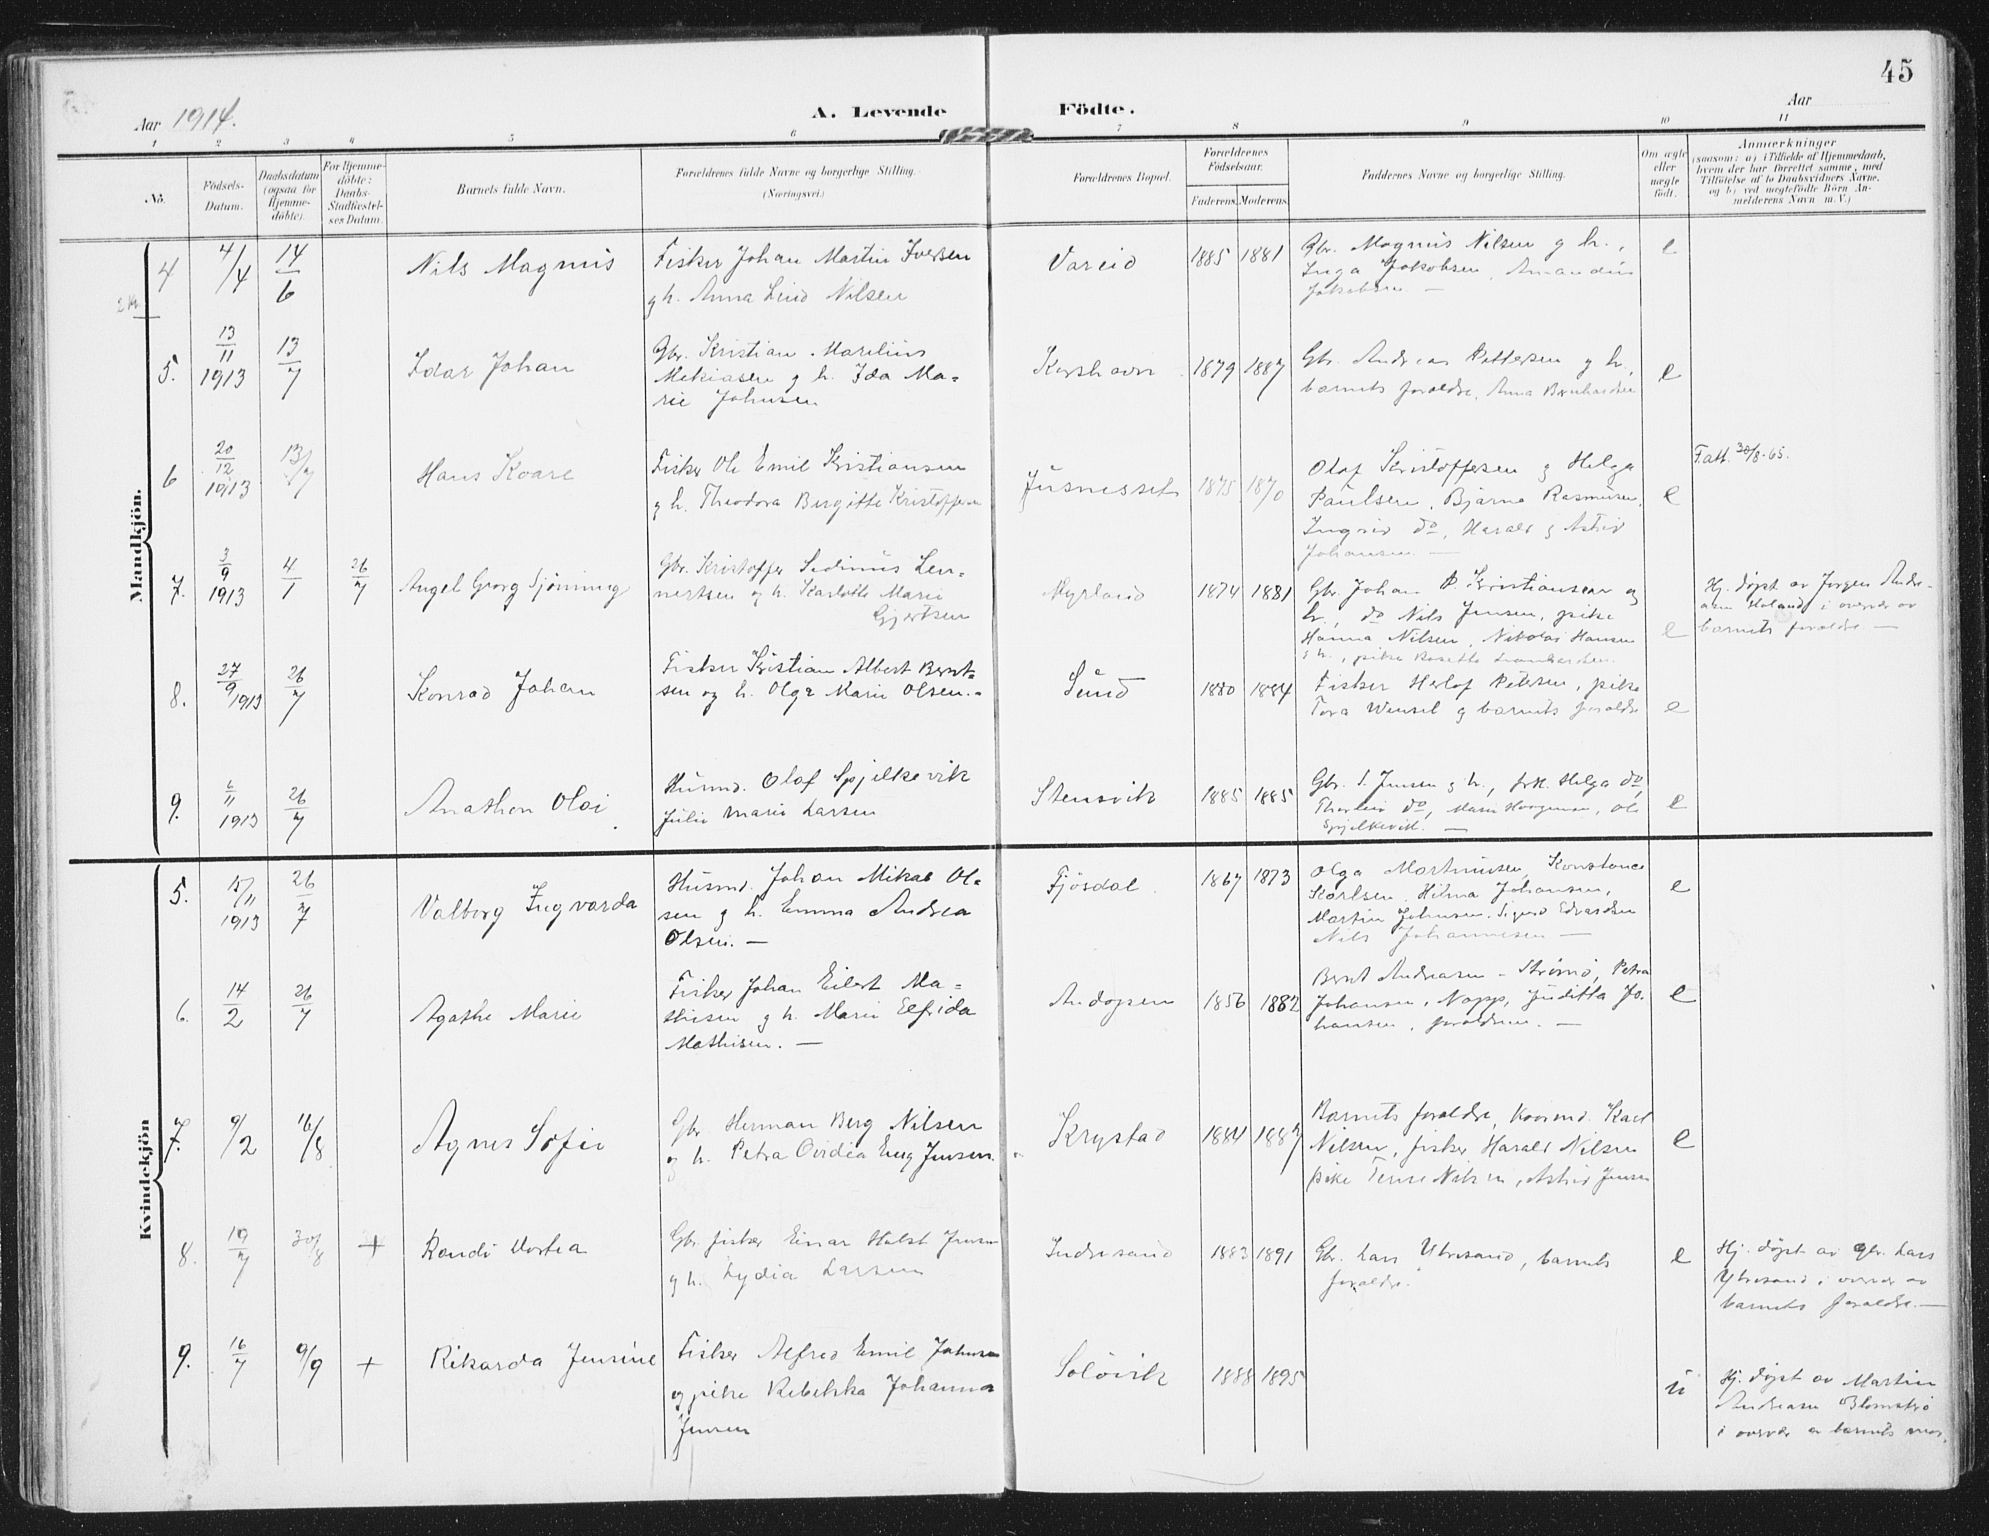 45
Aar 1914.
A. Levende Födte.
Aar
1 2 3 4 5 6 7 8 9 10 11
No.
Födsels-
Datum.
Daabsdatum
(ogsaa for
Hjemme-
döbte).
For Hjemme-
döbte:
Daabs-
Stadfæstel-
ses Datum.
Barnets fulde Navn.
Forældrenes fulde Navne og borgerlige Stilling.
(Næringsvei.)
Forældrenes Bopæl.
Forældrenes
Födselsaar.
Faderens. Moderens.
Faddernes Navne og borgerlige Stilling.
Om ægte
eller
uægte
födt.
Anmærkninger
(saasom: a) i Tilfælde af Hjemmedaab,
hvem der har forrettet samme, med
Tilföielse af to Daabsvidners Navne,
og b) ved uegtefödte Börn An-
melderens Navn m. V.)
Mandkjön.
4 4/4 14/6 Nils Magnus
Fisker Johan Martin Iversen
g h. Anna Lind Nilsen
Vareid 1885 1881
Gbr. Magnus Nilsen g h.,
Inga Jakobsen, Amandus
Jakobsen —
e
5. 13/11 1913 13/7 Idar Johan
Gbr. Kristian Marelius
Mekiasen g h. Ida Ma-
rie Johnsen
1879 1887
Gbr. Andreas Pettersen g h.,
barnets foraldre, Anna Bernhardsen
e
6 20/12 1913 13/7 Hans Kvare
Fisker Ole Emil Kristiansen
g h. Theodora Birgitte Kristoffersen
Jusnesset 1875 1870
Olaf Kristoffersen g Helga
Paulsen, Bjarne Rasmusen,
Ingrid do, Harald g Astrid
Johansen —
e
Fatt. 30/8-65.
7. 3/9 1913 4/1 26/7 Angel Georg Sjönning
Gbr. Kristoffer Sedinius Len-
nertsen og h. Karlotte Marie
Gjertsen
Myrland 1874 1881
Gbr. Johan P. Kristiansen og
h., do Nils Jensen, pike
Hanna Nilsen, Nikolai Hansen
g h., pike Rosette Leonhardsen.
e
Hj. døpt av Jørgen Andre-
asen Holand i overvær av
barnets foraldre —
8. 27/9 1913 26/7 Konrad Johan
Fisker Kristian Albert Bernt-
sen og h. Olga Marie Olsen.-
Sund 1880 1884
Fisker Herlof Petersen, pike
Tora Wensel g barnets foraldre
e
9. 6/11 1913 26/7 Anathon Olai
Husmd. Olaf Spjelkevik
Julie Marie Larsen
Stensvik 1885 1885
Gbr. S. Jensen g h., frk. Helga do,
Thorleiv do, Ole
Spjelkevik. —
e
Kvindekjön
5. 15/11 1913 26/7 Valborg Ingvarda
Husmd. Johan Mikal Ol-
sen g h. Emma Andrea
Olsen. —
Fjøsdal 1867 1873
Olga Martinusen, Konstance
Karlsen, Hilma Johansen,
Martin Johnsen, Sigurd Edvardsen
Nils Johannesen —
e
6. 14/2 26/7 Agathe Marie
Fisker Johan Eilert Ma-
thisen g h. Marie Elfrida
Mathisen. —
Andopen 1856 1882
Bernt Andreasen - Strømø, Petra
Johansen, Napp, Juditta Jo-
hansen, foraldrene. —
e
7. 9/2 16/8 Agnes Sofie
Gbr. Herman Berg Nilsen
og h. Petra Ovidia Eng Jensen.
Krystad 1884 1887
Barnets foraldre, Kaarmd. Karl
Nilsen, fisker Harald Nilsen
pike Nilsen, Astrid Jensen
e
8. 19/7 30/8 + Randi Dortea
Gbr. fisker Einar Hulst Jensen
g h. Lydia Larsen
Indresand 1883 1891
Gbr. Lars Ytresand, barnets
foraldre.
e
Hj. døpt av gbr. Lars
Ytresand i overvær av
barnets foraldre.—
9. 16/7 9/9 + Rikarda Jensine
Fisker Alfred Emil Johnsen
og pike Rebekka Johanna
Jensen
Soløvik 1888 1895
u
Hj. døpt av Martin
Andreasen Blomstrø
i overvær av barnets mor.